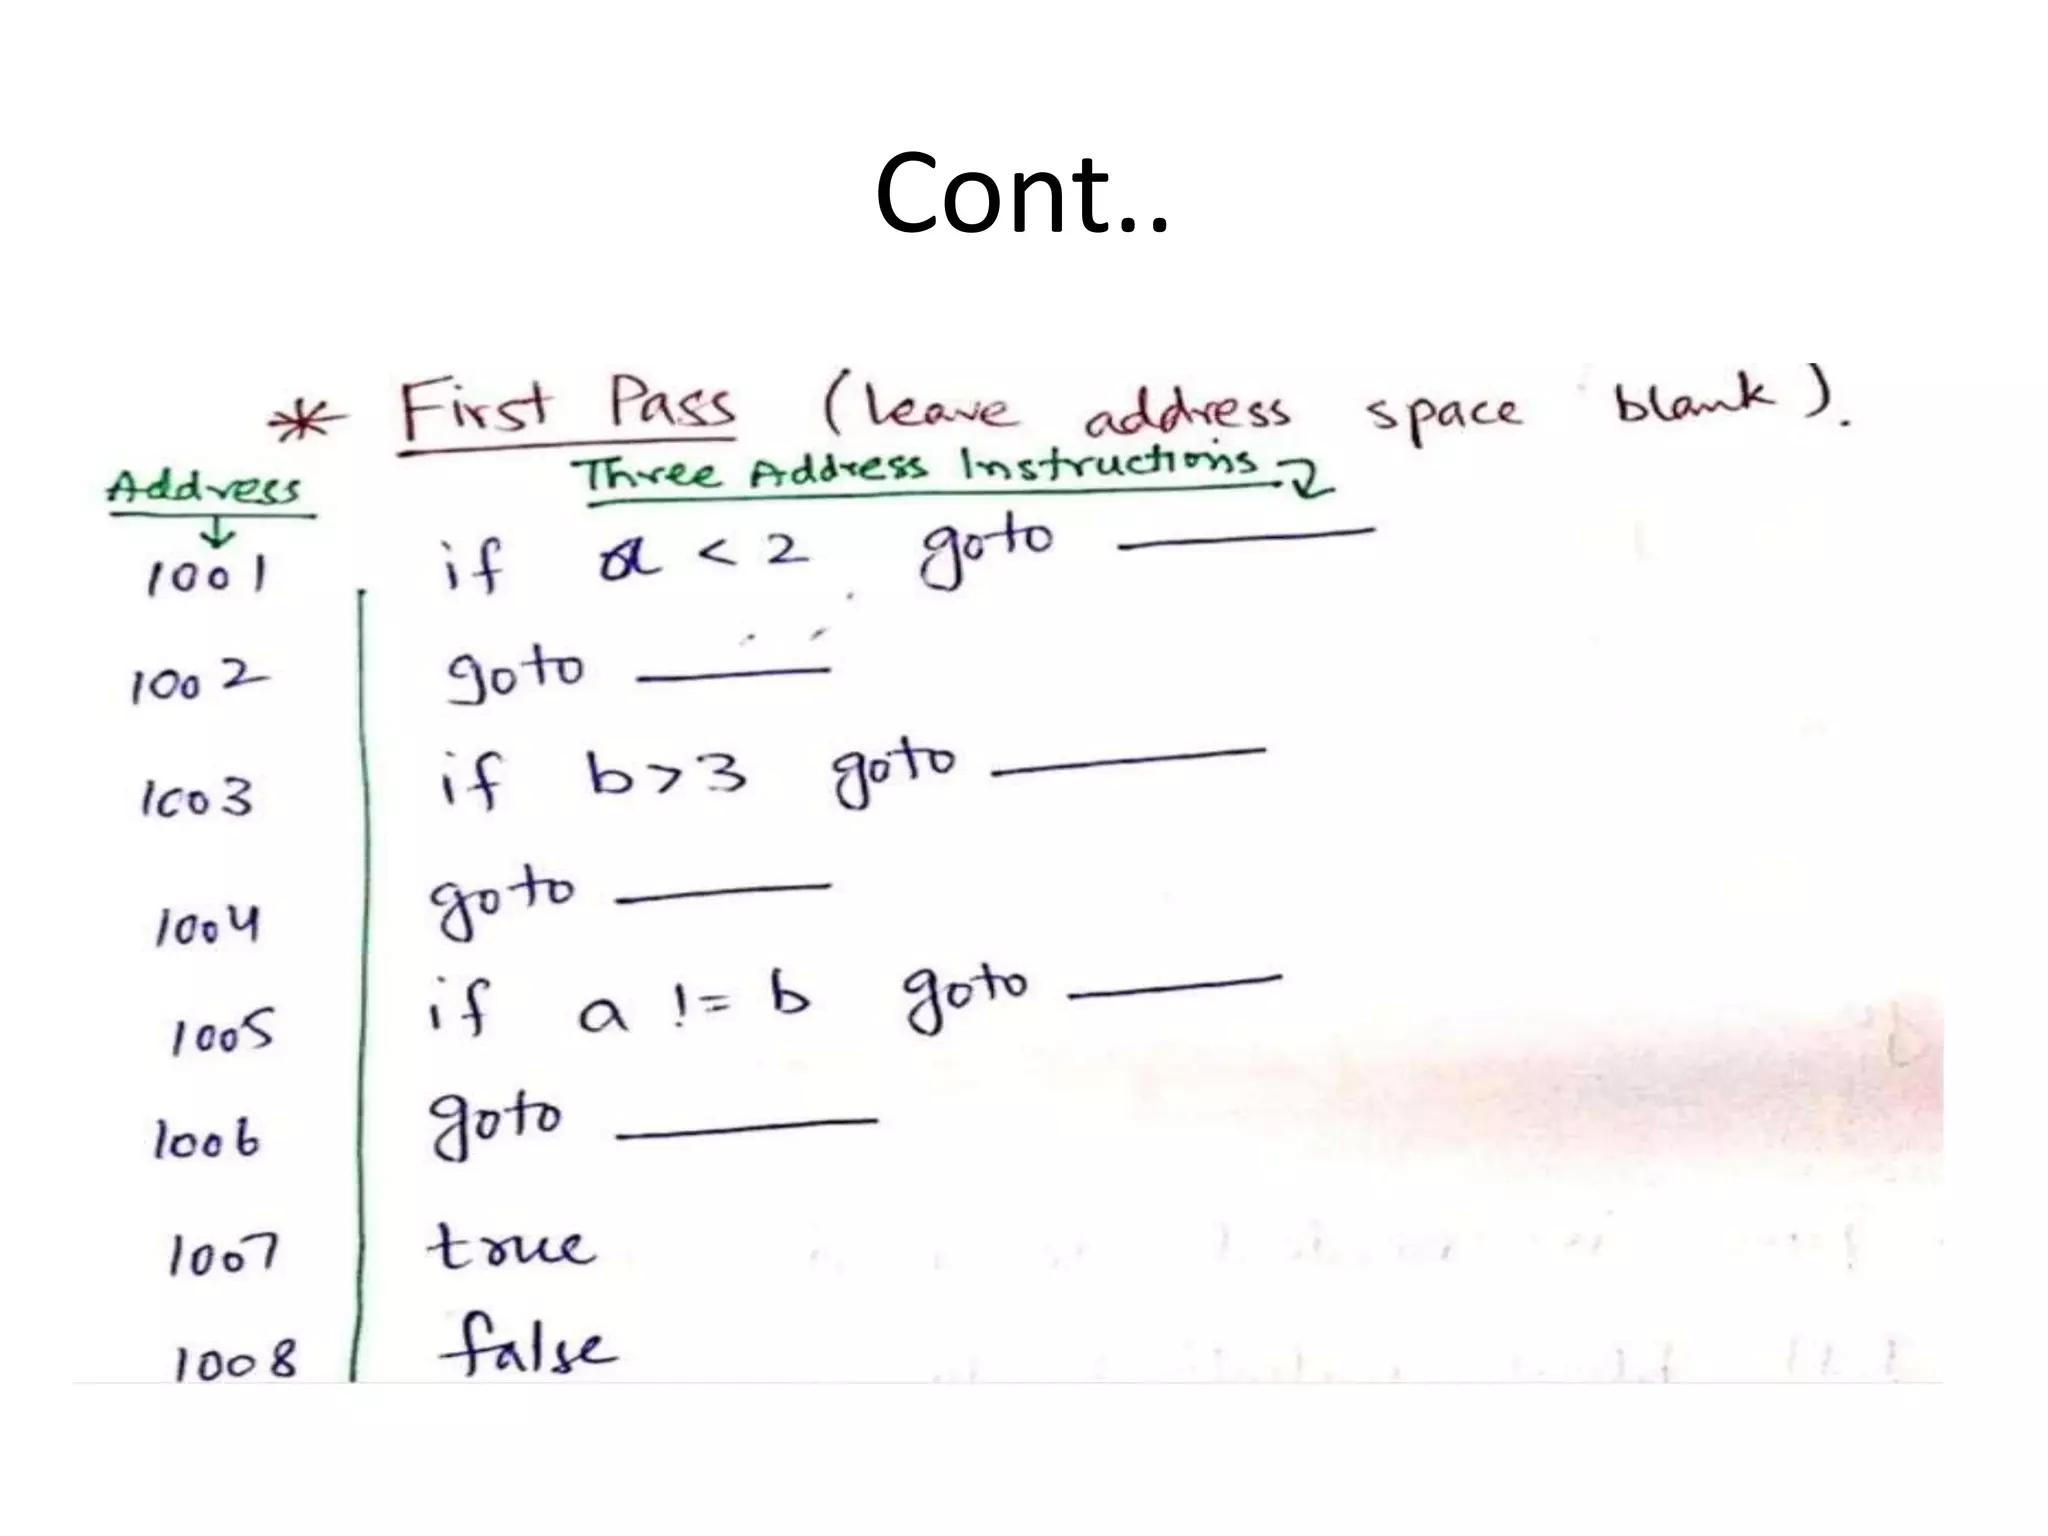 Cont..
* First Pass (leave address space blank).
Address Three Address Instructions
1001 if a < 2 goto ________
1002 goto ________
1003 if b > 3 goto ________
1004 goto ________
1005 if a != b goto ________
1006 goto ________
1007 true
1008 false